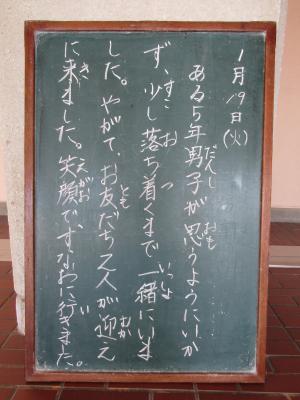 1月19日(火)
ある5年男子が思うようにいか
ず、少し落ち着くまで一緒にいま
した。やがて、お友だち2人が迎え
に来ました。笑顔で、すなおに行きました。